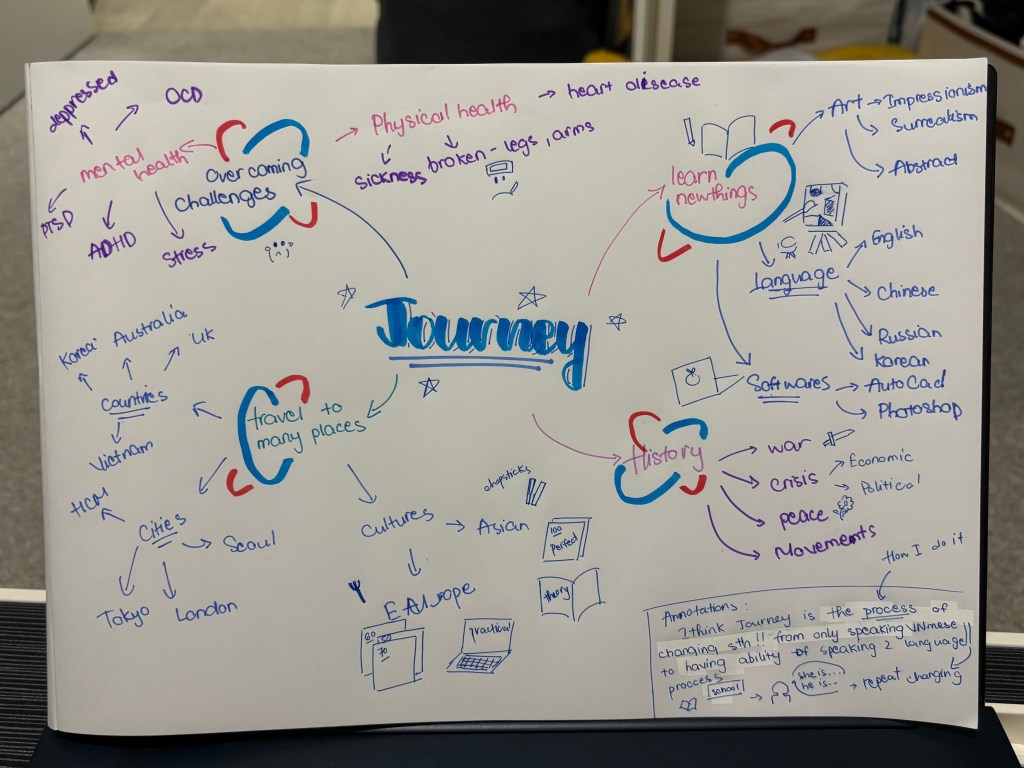 Journey
overcoming
challenges
mental
health
depressed
OCD
PTSD
ADHD
Stress
Physical health
heart disease
sickness
broken - legs, arms
learn
newthings
Art
Impressionism
Surrealism
Abstract
Language
English
Chinese
Russian
Korean
Softwares
AutoCad
Photoshop
travel to
many places
Countries
Korea
Australia
UK
Vietnam
Cities
HCM
Seoul
Tokyo
London
Cultures
Asian
chopsticks
100
Perfect
theory
60
50
70
practical
History
war
crisis
Economic
Political
peace
Movements
How I do it
Annotations :
I think Journey is the process of
changing sth !! from only speaking
to having ability of speaking 2 language
proccess
school
she is...
he is...
repeat changing